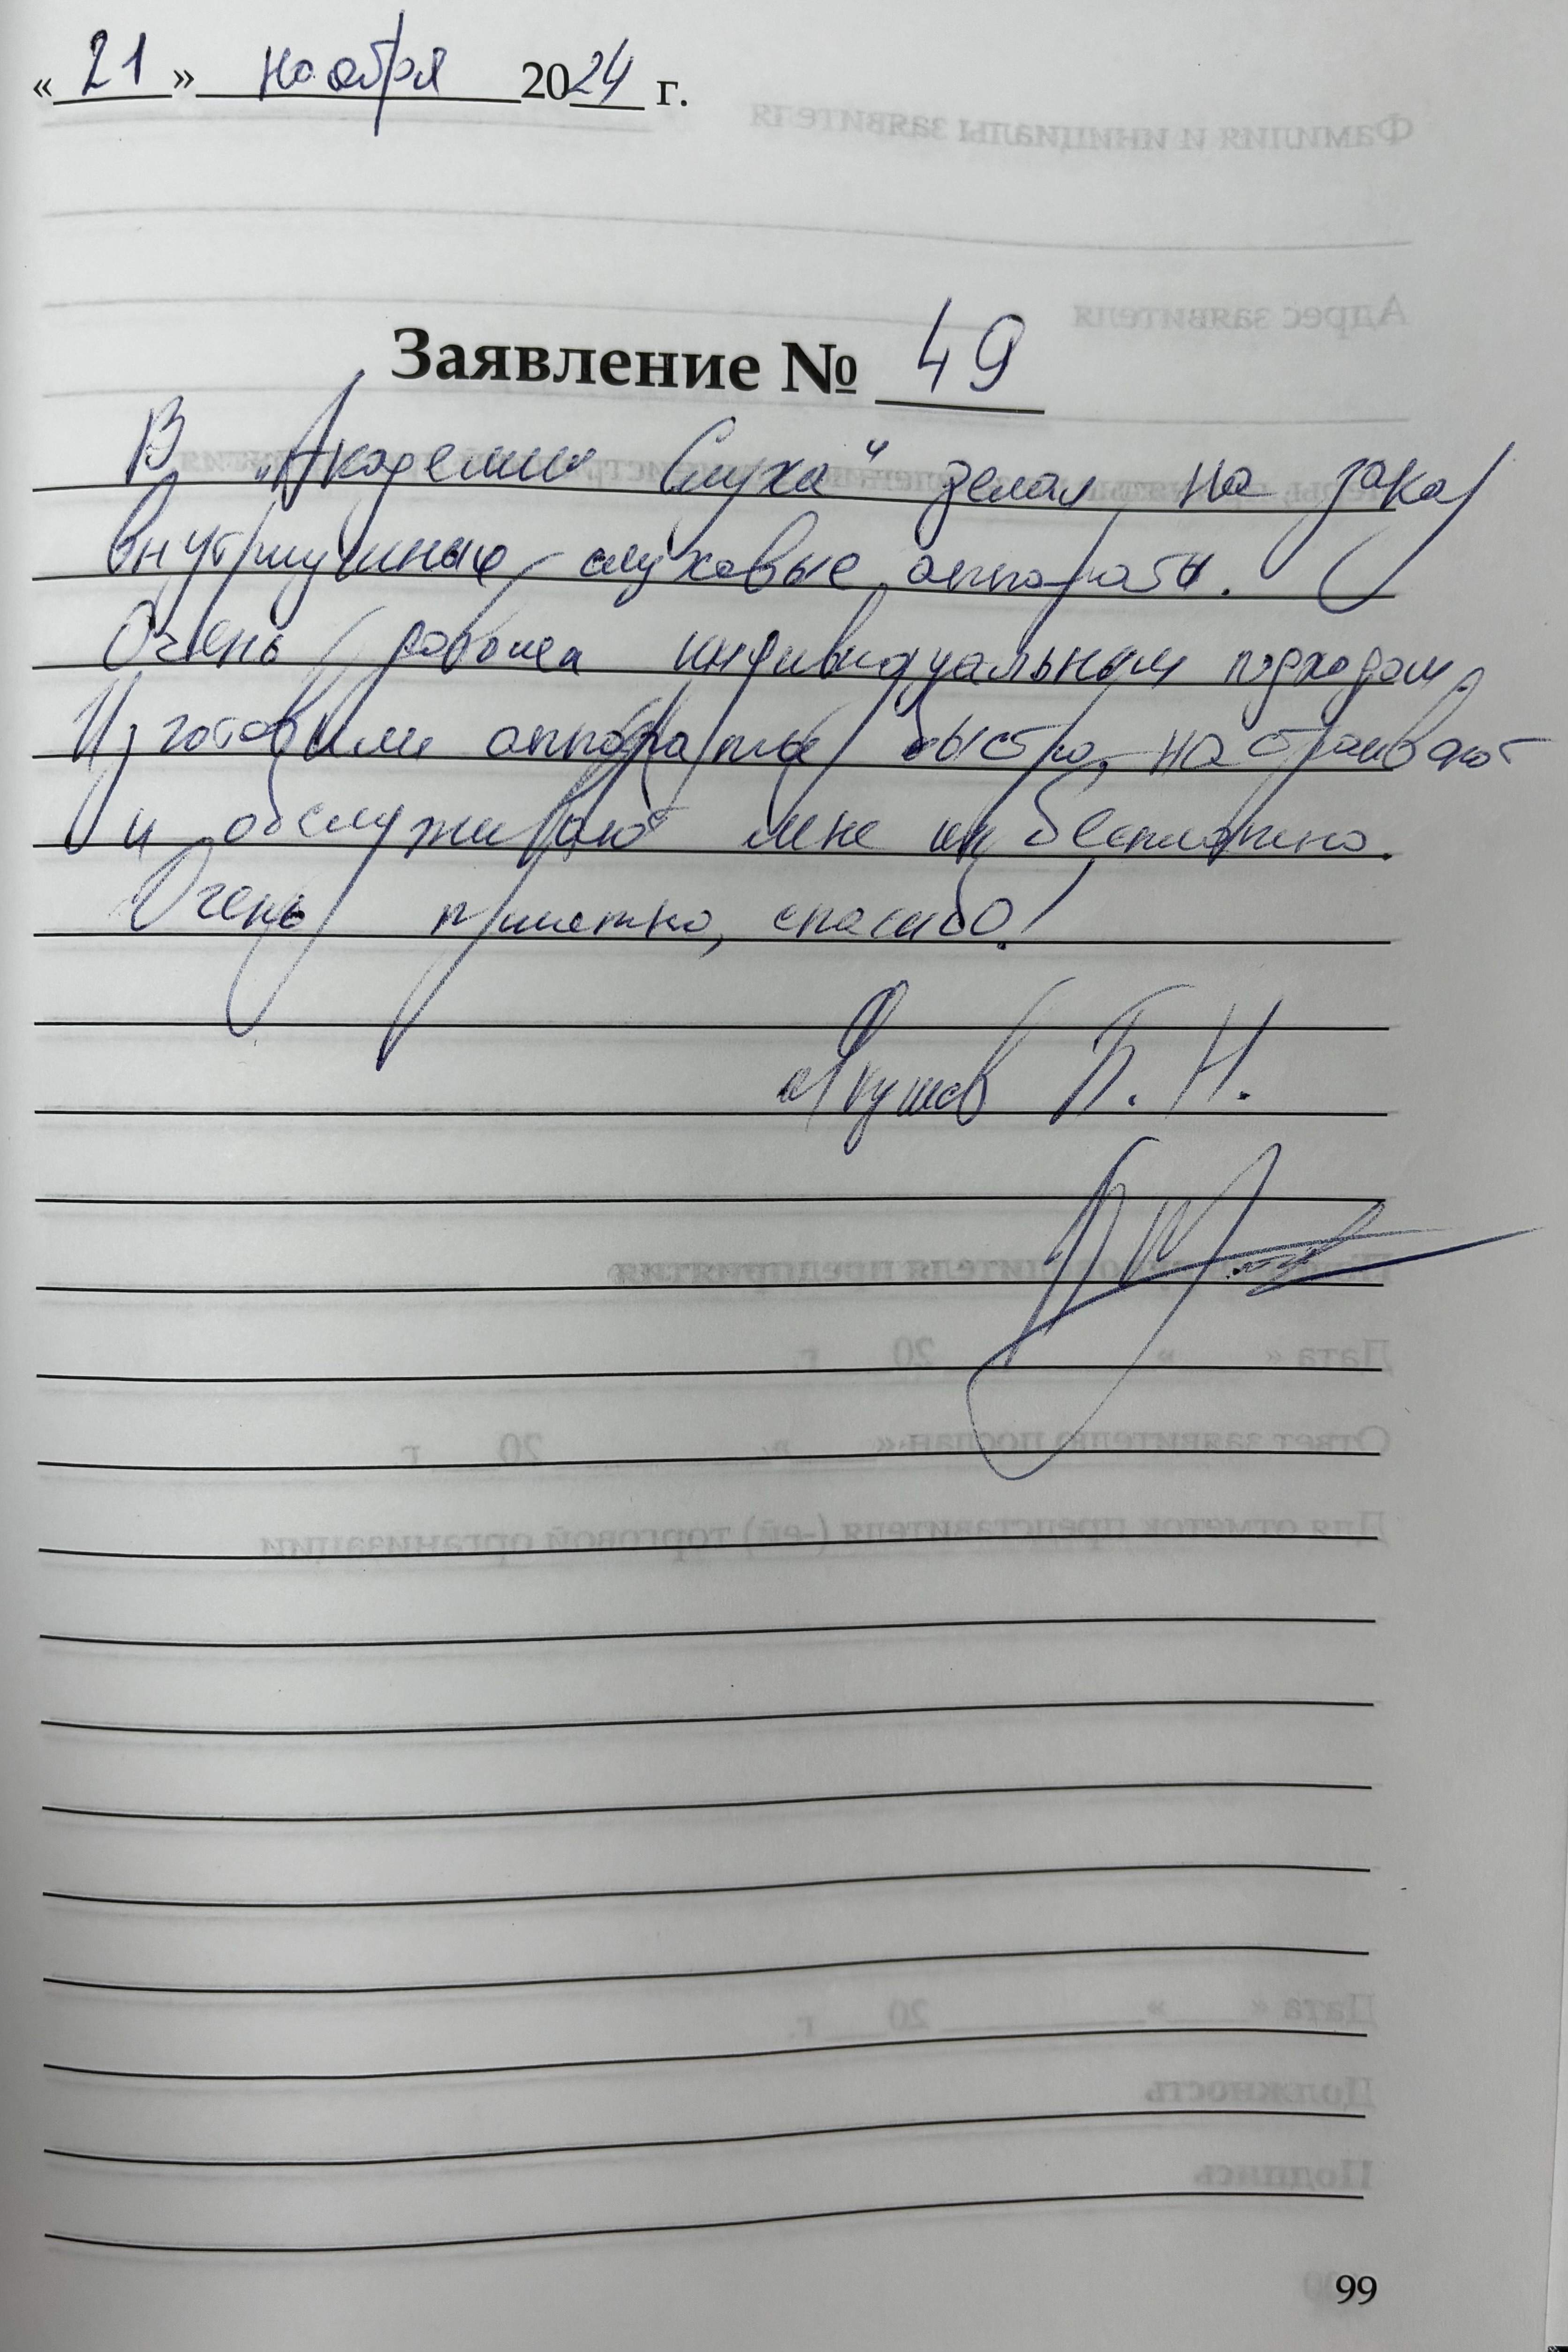 « 21 » ноября 2024 г.
Заявление № 49
В „Академии Слуха" делал на заказ
внутриушные слуховые аппараты.
Очень доволен индивидуальным подходом.
Изготовили аппараты быстро, настраивают
и обслуживают мне их бесплатно.
Очень приятно, спасибо!
Якушев Б. Н.
99